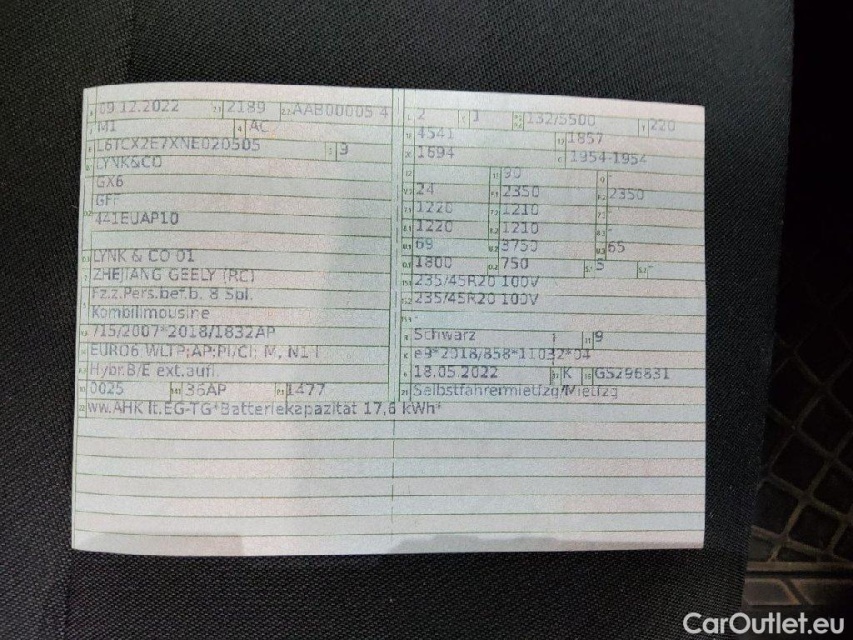 09.12.2022 2189 AAB00005 4
M1 AC
L6TCX2E7XNE020505 9
LYNK&CO
GX6
GFF
441EUAP10
LYNK & CO 01
ZHEJIANG GEELY (RC)
Fz.z.Pers.bef.b. 8 Spl.
Kombilimousine
715/2007*2018/1832AP
EURO6 WLTP;AP;PI/CI; M, N1 I
Hybr.B/E ext.aufl.
0025 36AP 1477
ww.AHK lt.EG-TG*Batteriekapazität 17,6 kWh*
2 1 132/5500 220
4541 1857
1694 1954-1954
90 -
24 2350 2350
1220 1210 -
1220 1210 -
69 3750 65
1800 750 5 -
235/45R20 100V
235/45R20 100V
-
Schwarz 9
e9*2018/858*11032*04
18.05.2022 K GS296831
Selbstfahrermietfzg/Mietfzg
CarOutlet.eu